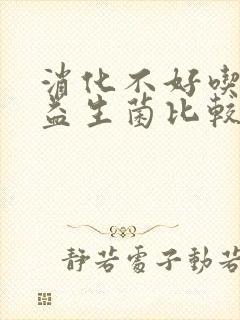 消化不好喫
益生菌比較
靜若處子動若